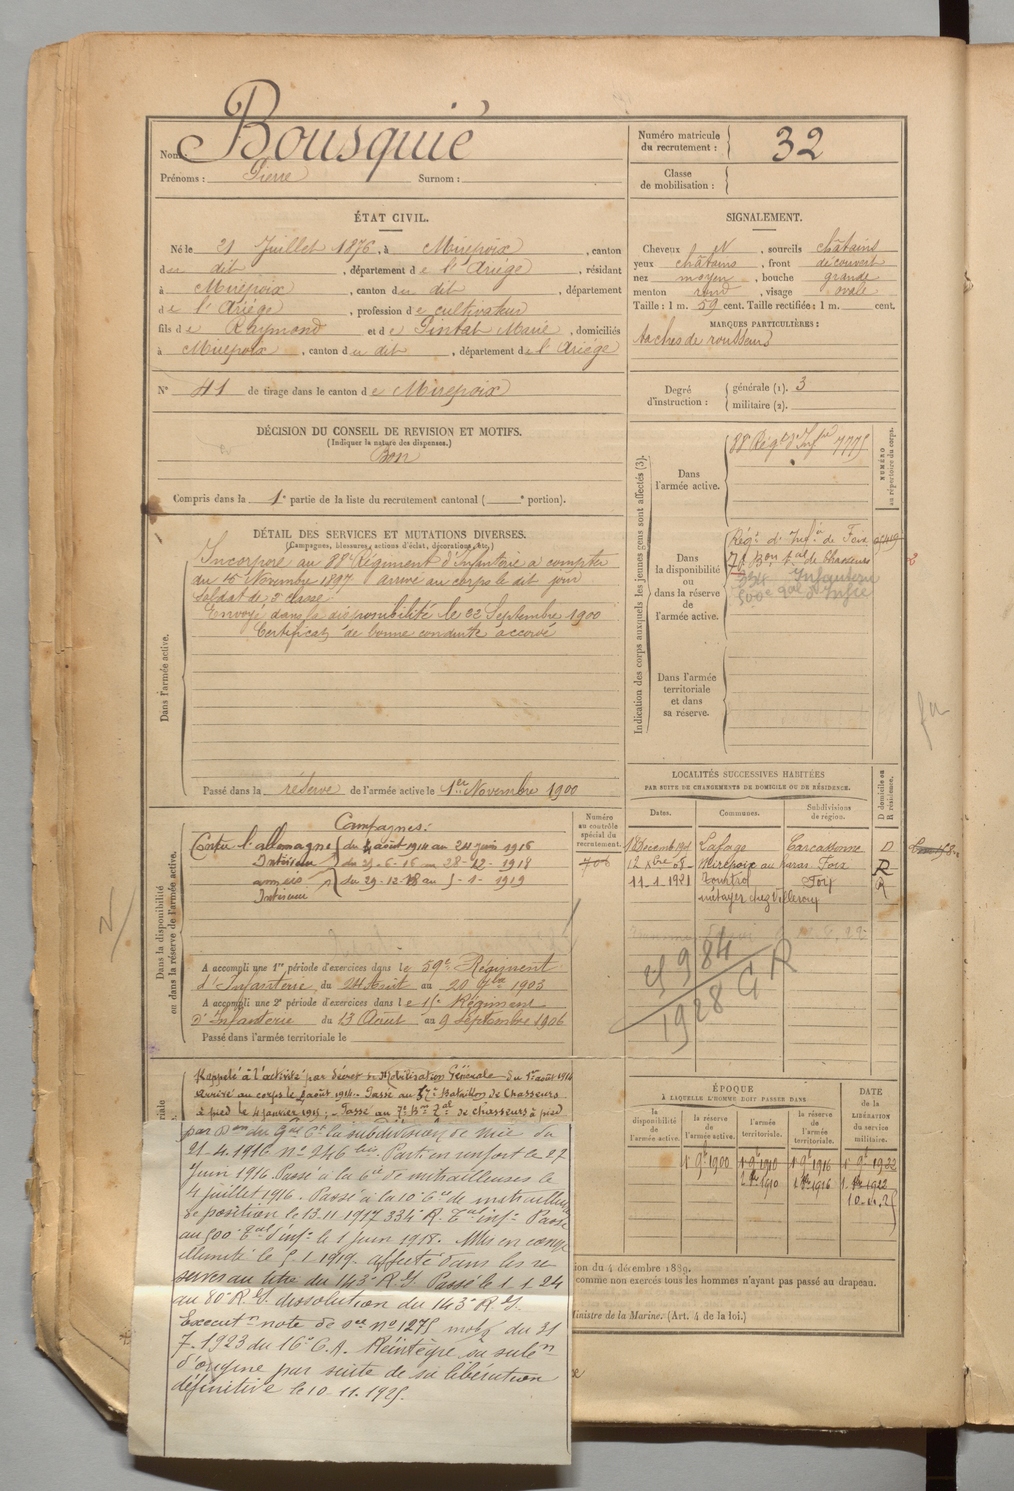 Nom : Bousquié
Prénoms : Pierre Surnom :
Numéro matricule du recrutement : 32
Classe de mobilisation :
ÉTAT CIVIL.
Né le 21 Juillet 1876, à Mirepoix, canton
du dit, département de l'Ariège, résidant
à Mirepoix, canton du dit, département
de l'Ariège, profession de cultivateur
fils de Raymond et de Marie, domiciliés
à Mirepoix, canton du dit, département de l'Ariège
N° 41 de tirage dans le canton de Mirepoix
SIGNALEMENT.
Cheveux N, sourcils châtains
yeux châtains, front découvert
nez moyen, bouche grande
menton rond, visage ovale
Taille : 1 m. 59 cent. Taille rectifiée : 1 m. cent.
MARQUES PARTICULIÈRES :
taches de rousseurs
Degré d'instruction : générale (1). 3
militaire (2).
DÉCISION DU CONSEIL DE REVISION ET MOTIFS.
(Indiquer la nature des dispenses.)
Bon
Compris dans la 1e partie de la liste du recrutement cantonal ( e portion).
DÉTAIL DES SERVICES ET MUTATIONS DIVERSES.
(Campagnes, blessures, actions d'éclat, décorations, etc.)
Dans l'armée active.
Incorporé au 88e Régiment d'Infanterie à compter
du 15 Novembre 1897 arrivé au corps le dit jour
soldat de 2e classe
Envoyé dans la disponibilité le 22 Septembre 1900
Certificat de bonne conduite accordé
Passé dans la réserve de l'armée active le 1er Novembre 1900
Indication des corps auxquels les jeunes gens sont affectés (3).
NUMÉRO au répertoire du corps.
Dans l'armée active.
88e Régt d'Infrie 7775
Dans la disponibilité ou dans la réserve de l'armée active.
Régt d'Infie de Foix
7e Bon tal de Chasseurs
334 Infanterie
500e tal d'Infie
Dans l'armée territoriale et dans sa réserve.
LOCALITÉS SUCCESSIVES HABITÉES
PAR SUITE DE CHANGEMENTS DE DOMICILE OU DE RÉSIDENCE.
Dates. Communes. Subdivisions de région. D domicile ou R résidence.
Lafage Carcassonne D
12 Xbre 08 Mirepoix au haras Foix R
11-1-1921 Foix R
métayer chez Villeroux
984
1928 G R
Dans la disponibilité ou dans la réserve de l'armée active.
Numéro au contrôle spécial du recrutement.
706
Campagnes :
Contre l'allemagne du 4 août 1914 au 24 juin 1916
Intérieur du 25-6-16 au 28-12-1918
armées du 29-12-18 au 5-1-1919
Intérieur
A accompli une 1re période d'exercices dans le 59e Régiment
d'Infanterie du 24 Août au 20 7bre 1903
A accompli une 2e période d'exercices dans le 15e Régiment
d'Infanterie du 13 Août au 9 Septembre 1906
Passé dans l'armée territoriale le
Rappelé à l'activité par décret de Mobilisation Générale du 1er août 1914
arrivé au corps le 4 août 1914. Passé au 57e Bataillon de Chasseurs
à pied le 4 janvier 1915 ; Passé au 7e Bon Tal de chasseurs à pied
par Don du Gal Ct la subdivision de Nice du
21-4-1916 n° 246 bis. Parti en renfort le 27
Juin 1916. Passé à la 6e Cie de mitrailleuses le
4 juillet 1916. Passé à la 10e Cie de mitrailleuse
de position le 13-11-1917 334e R. Tal infie Passé
au 500e Tal d'infie le 1 juin 1918. Mis en congé
illimité le 5-1-1919. affecté dans les ré
serves au titre du 143e R.I. Passé le 1-1-24
au 80e R.I. dissolution du 143e R.I.
Executon note de sce n° 1275 mobon du 31
7-1923 du 16e C.A. Réintègre sa subon
d'origine par suite de sa libération
définitive le 10-11-1925.
ÉPOQUE
À LAQUELLE L'HOMME DOIT PASSER DANS
la disponibilité de l'armée active. la réserve de l'armée active. l'armée territoriale. la réserve de l'armée territoriale.
DATE de la LIBÉRATION du service militaire.
1 9bre 1900 1 9bre 1910 1 9bre 1916 1 9bre 1922
1 8bre 1910 1 8bre 1916 1 8bre 1922
10-11-25
ion du 4 décembre 1889.
comme non exercés tous les hommes n'ayant pas passé au drapeau.
Ministre de la Marine. (Art. 4 de la loi.)